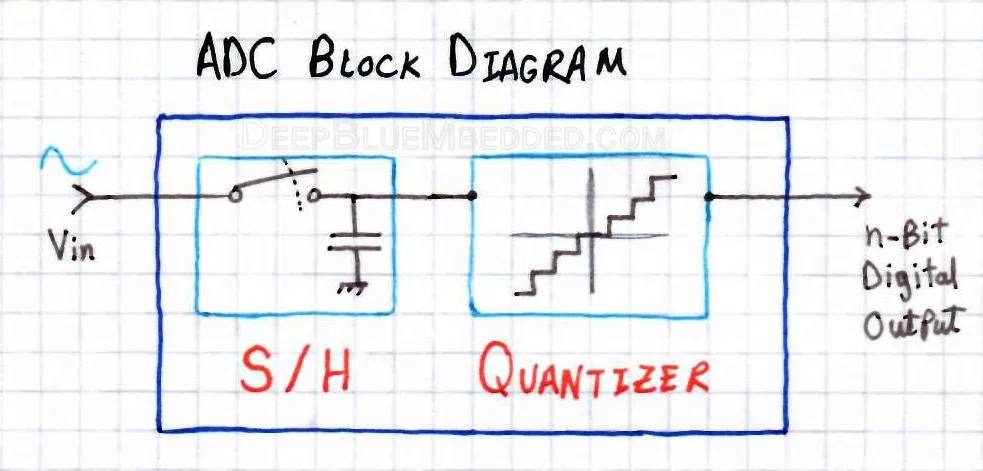 ADC Block Diagram
DeepBlueMbedded.com
Vin
S/H
Quantizer
n-Bit
Digital
Output